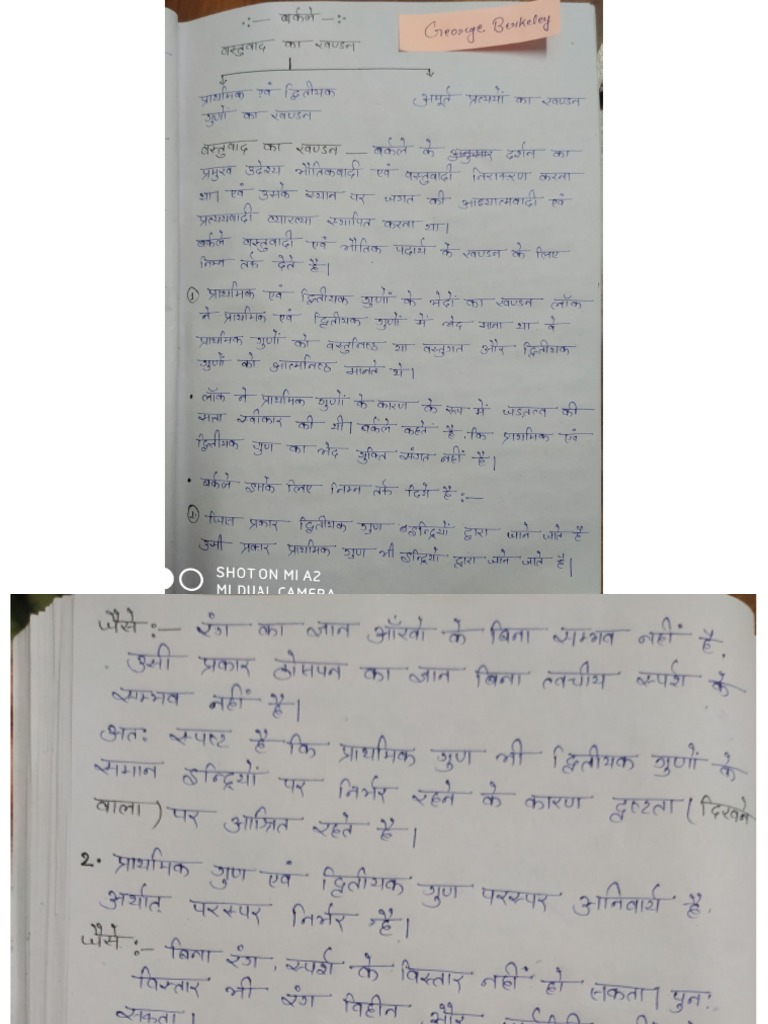 -: बर्कले -:
George Berkeley
वस्तुवाद का खण्डन
प्राथमिक एवं द्वितीयक
गुणों का खण्डन
अमूर्त प्रत्ययों का खण्डन
वस्तुवाद का खण्डन — बर्कले के अनुसार दर्शन का
प्रमुख उदेश्य भौतिकवादी एवं वस्तुवादी निराकरण करना
था। एवं उसके स्थान पर जगत की आध्यात्मवादी एवं
प्रत्ययवादी व्याख्या स्थापित करना था।
बर्कले वस्तुवादी एवं भौतिक पदार्थ के खण्डन के लिए
निम्न तर्क देते है।
① प्राथमिक एवं द्वितीयक गुणों के भेदों का खण्डन लॉक
ने प्राथमिक एवं द्वितीयक गुणों में भेद माना था वे
प्राथमिक गुणों को वस्तुनिष्ठ या वस्तुगत और द्वितीयक
गुणों को आत्मनिष्ठ मानते थे।
• लॉक ने प्राथमिक गुणों के कारण के रूप में जडतत्व की
सत्ता स्वीकार की थी। बर्कले कहते है कि प्राथमिक एवं
द्वितीयक गुण का भेद युक्ति संगत नहीं है।
• बर्कले इसके लिए निम्न तर्क दिये है :-
① जिस प्रकार द्वितीयक गुण इन्द्रियों द्वारा जाने जाते है
उसी प्रकार प्राथमिक गुण भी इन्द्रियों द्वारा जाने जाते है।
SHOT ON MI A2
MI DUAL CAMERA
जैसे :- रंग का ज्ञान आँखो के बिना सम्भव नहीं है,
उसी प्रकार ठोसपन का ज्ञान बिना त्वचीय स्पर्श के
सम्भव नहीं है।
अतः स्पष्ट है कि प्राथमिक गुण भी द्वितीयक गुणों के
समान इन्द्रियों पर निर्भर रहने के कारण दृष्टता (दिखने
वाला) पर आश्रित रहते है।
2. प्राथमिक गुण एवं द्वितीयक गुण परस्पर अनिवार्य है,
अर्थात् परस्पर निर्भर है।
जैसे :- बिना रंग, स्पर्श के विस्तार नहीं हो सकता। पुनः
विस्तार भी रंग विहीन और
सकता।